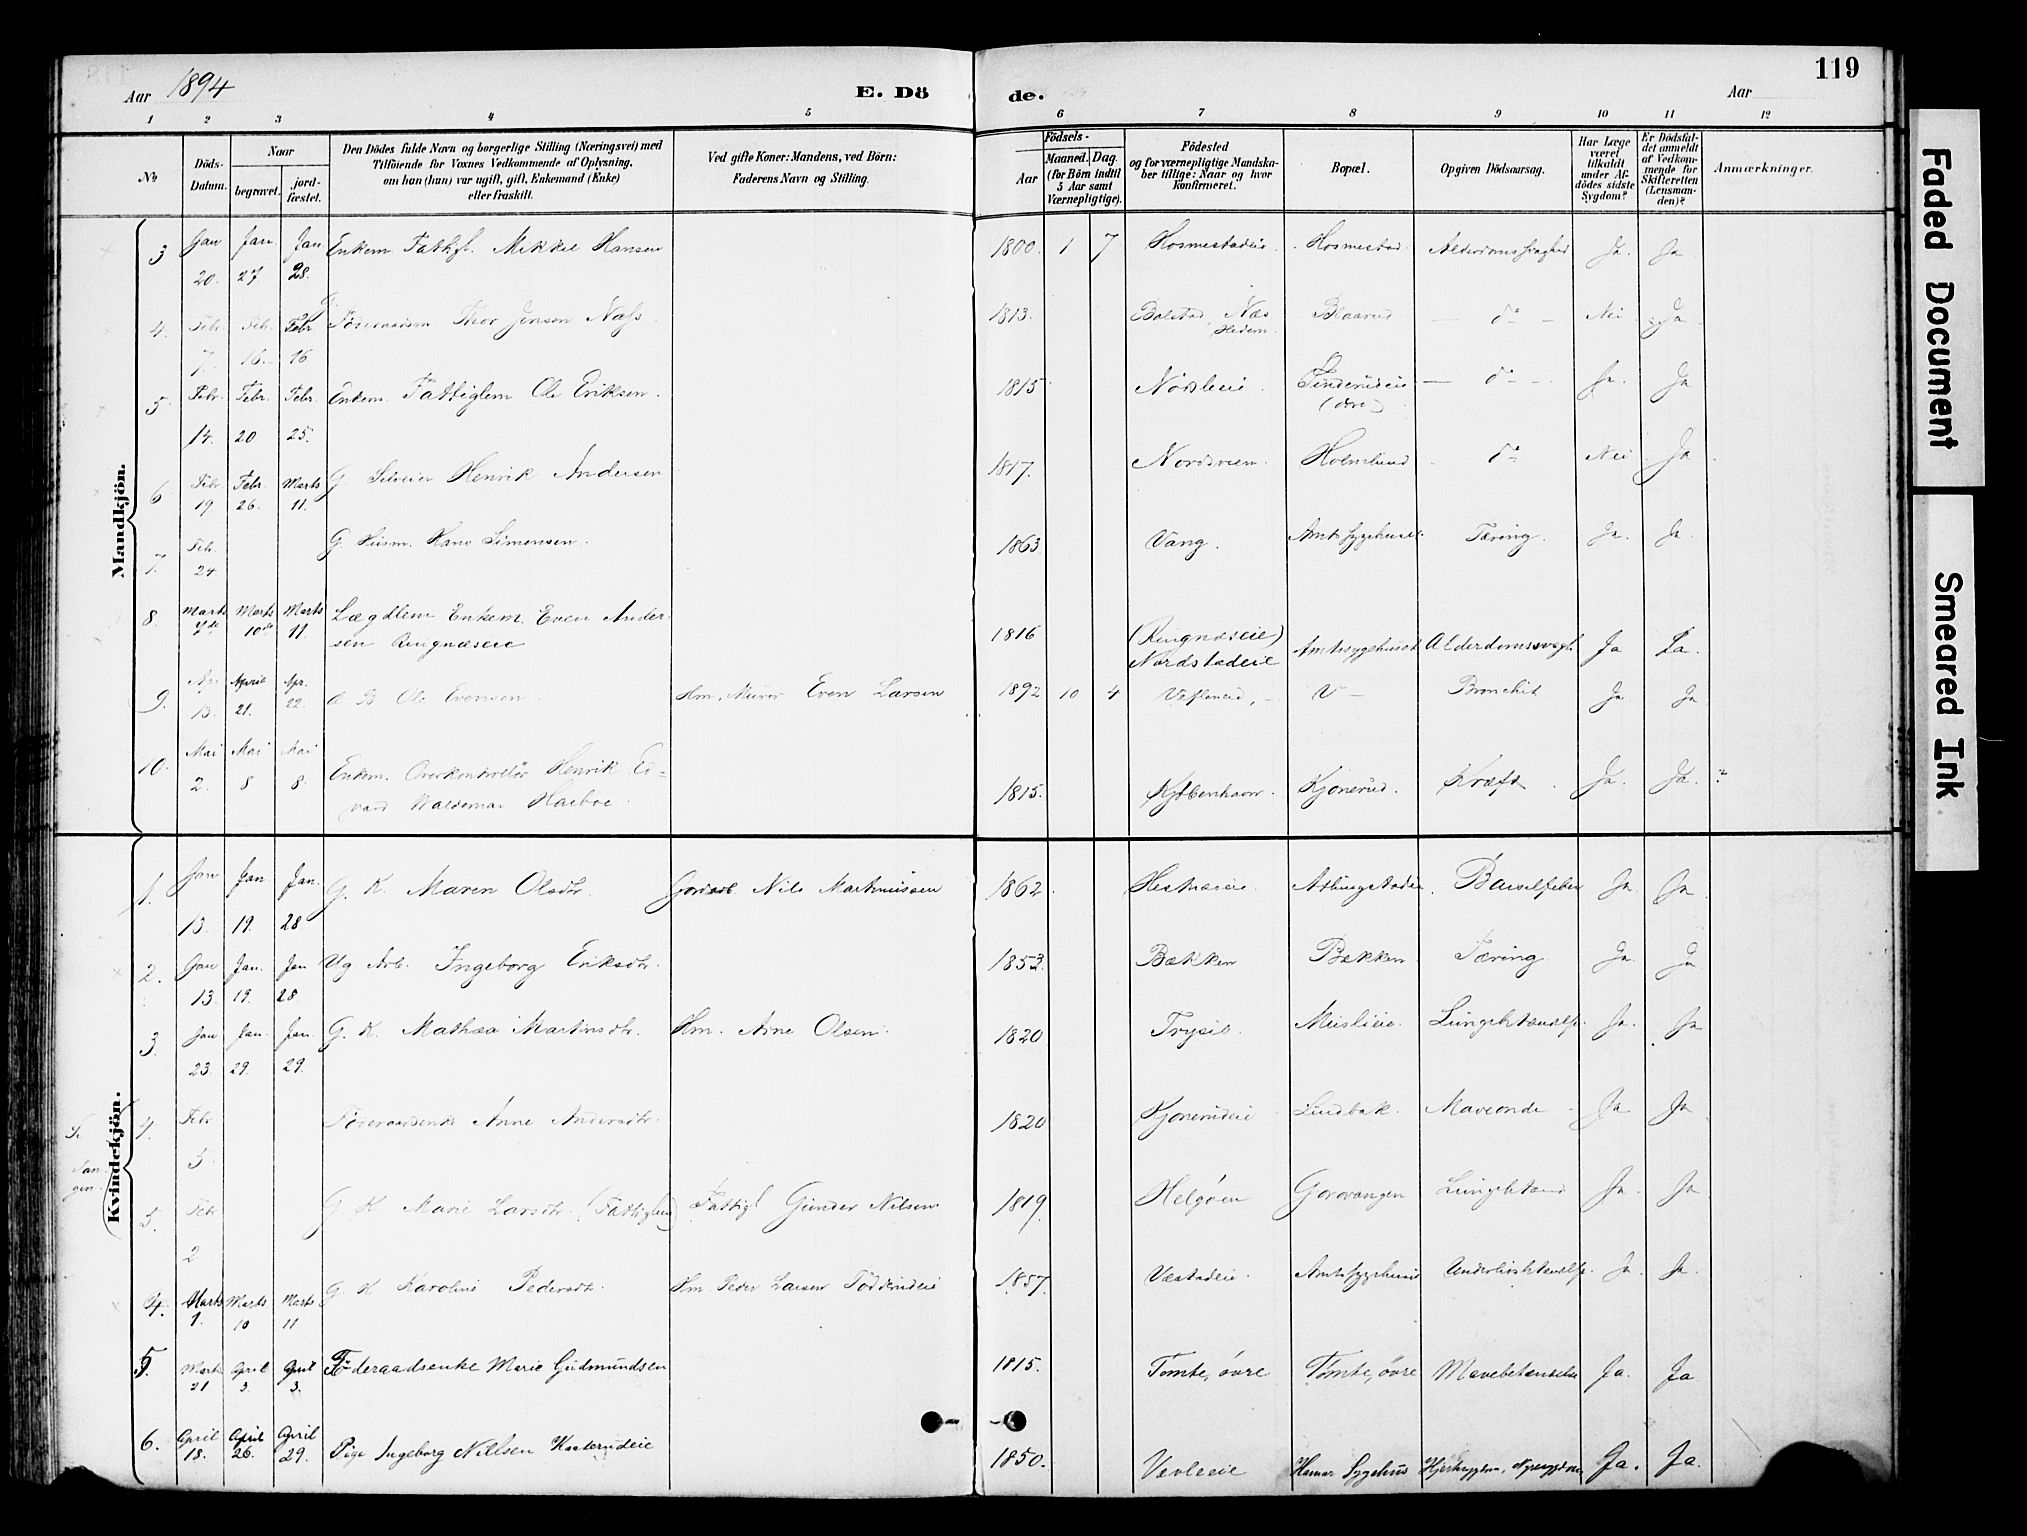 119
Aar 1894
E. Dö
de.
Aar
1 2 3 4 5 6 7 8 9 10 11 12
№
Döds-Datum.
Naar
begravet.
jord-fæstet.
Den Dödes fulde Navn og borgerlige Stilling (Næringsvei) med
Tilföiende for Voxnes Vedkommende af Oplysning,
om han (hun) var ugift, gift, Enkemand (Enke)
eller fraskilt.
Ved gifte Koner: Mandens, ved Börn:
Faderens Navn og Stilling.
Födsels-
Aar
Maaned. Dag.
(for Börn indtil
5 Aar samt
Værnepligtige).
Födested
og for værnepligtige Mandska-
ber tillige: Naar og hvor
konfirmeret.
Bopæl.
Opgiven Dödsaarsag.
Har Læge
været
tilkaldt
under Af-
dödes sidste
Sygdom?
Er Dödsfal-
det anmeldt
af Vedkom-
mende for
Skifteretten
(Lensman-
den)?
Anmærkninger.
Mandkjön.
3 Jan 20. Jan. 27 Jan 28. Enkem. Fattigl. Mikkel Hansen 1800 1 7 Hosmestadeie Hosmestad Alderdomssvaghed Ja Ja
4. Febr 7. Febr. 16. Febr 16 Föderaadsm. Thor Jensen Næss 1813. Bolstad, Næs Hedem. Blaarud do Nei Ja
5 Febr. 14. Febr. 20 Febr. 25. Enkem. Fattiglem Ole Eriksen. 1815 do Ja. Ja
6 Febr 19 Febr 26. Marts 11. G. Henrik Andersen 1817. Nordsveen Holmlund do Nei Ja
7. Febr. 24 G. Husm. Hans Simensen. 1863 Vang. Amtssygehuset Tæring. Ja. Ja.
8. Marts 7de Marts 10de Marts 11. Lægdlem Enkem. Even Ander-
sen Ringnæseie 1816 (Ringnæseie)
Nordstadeie Amtssygehuset Alderdomssvagh. Ja Ja.
9. Apr 13. April 21. Apr. 22. Ole Evensen. Hm. Murer Even Larsen 1892 10 4 Bronchit Ja Ja
10. Mai 2. Mai 8 Mai 8. Enkem. Overkontrolör Henrik Ed-
vard Waldemar Harboe. 1815. Kjöbenhavn. Kjonerud. Kræft Ja. Ja. ?
Kvindekjön.
1. Jan 13. Jan 19. Jan. 28 G. K. Maren Olsdtr. Nils Martinussen 1862 Hestnæseie Barselfeber Ja Ja
2. Jan 13. Jan. 19. Jan 28. Ug Arb. Ingeborg Eriksdtr. 1853 Bækken Bækken Tæring Ja. Ja
3. Jan 23. Jan. 29. Jan. 29. G. K. Mathea Martinsdtr. Hm. Arne Olsen. 1820 Trysil. Lungebetændelse Ja. Ja
Tan-
gen.
4. Febr 5 Föderaadsenke Anne Andersdtr. 1820 Kjonerudeie Lindbak. Mavonde Ja Ja
5. Febr 2 G. K. Marie Larsdtr. (Fattiglem) Fattigl Gunder Nilsen 1819 Helgöen Gorovangen Lungebetænd Ja. Ja
4. Marts 1. Marts 10 Marts 11 G. K Karoline Pedersdtr. Hm. Peder Larsen 1857. Amtssygehuset Underlivsbetændelse Ja. Ja.
5. Marts 21 April 3. April 3. Föderaadsenke Marie Gudmundsen 1815. Tomte, övre Tömte, övre Mavebetændelse Ja. Ja
6. April 18. April 26. April 29. Pige Ingeborg Nillsen Kaaterudeie 1850. Vevleeie Hamar Sygehus Hjertesygdom, Nyresygdom Ja. Ja.
Faded Document
Smeared Ink